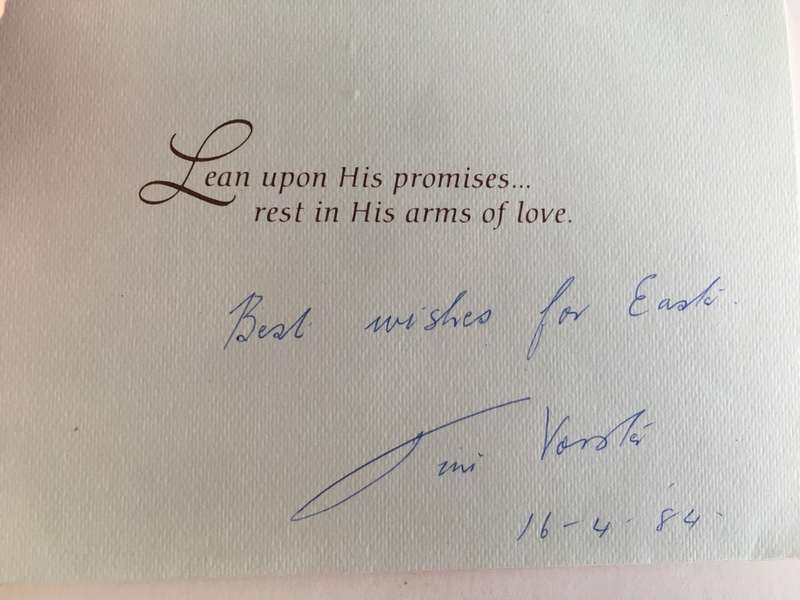 Lean upon His promises...
rest in His arms of love.
Best wishes for Easter.
Tini Vorster
16-4-'84-